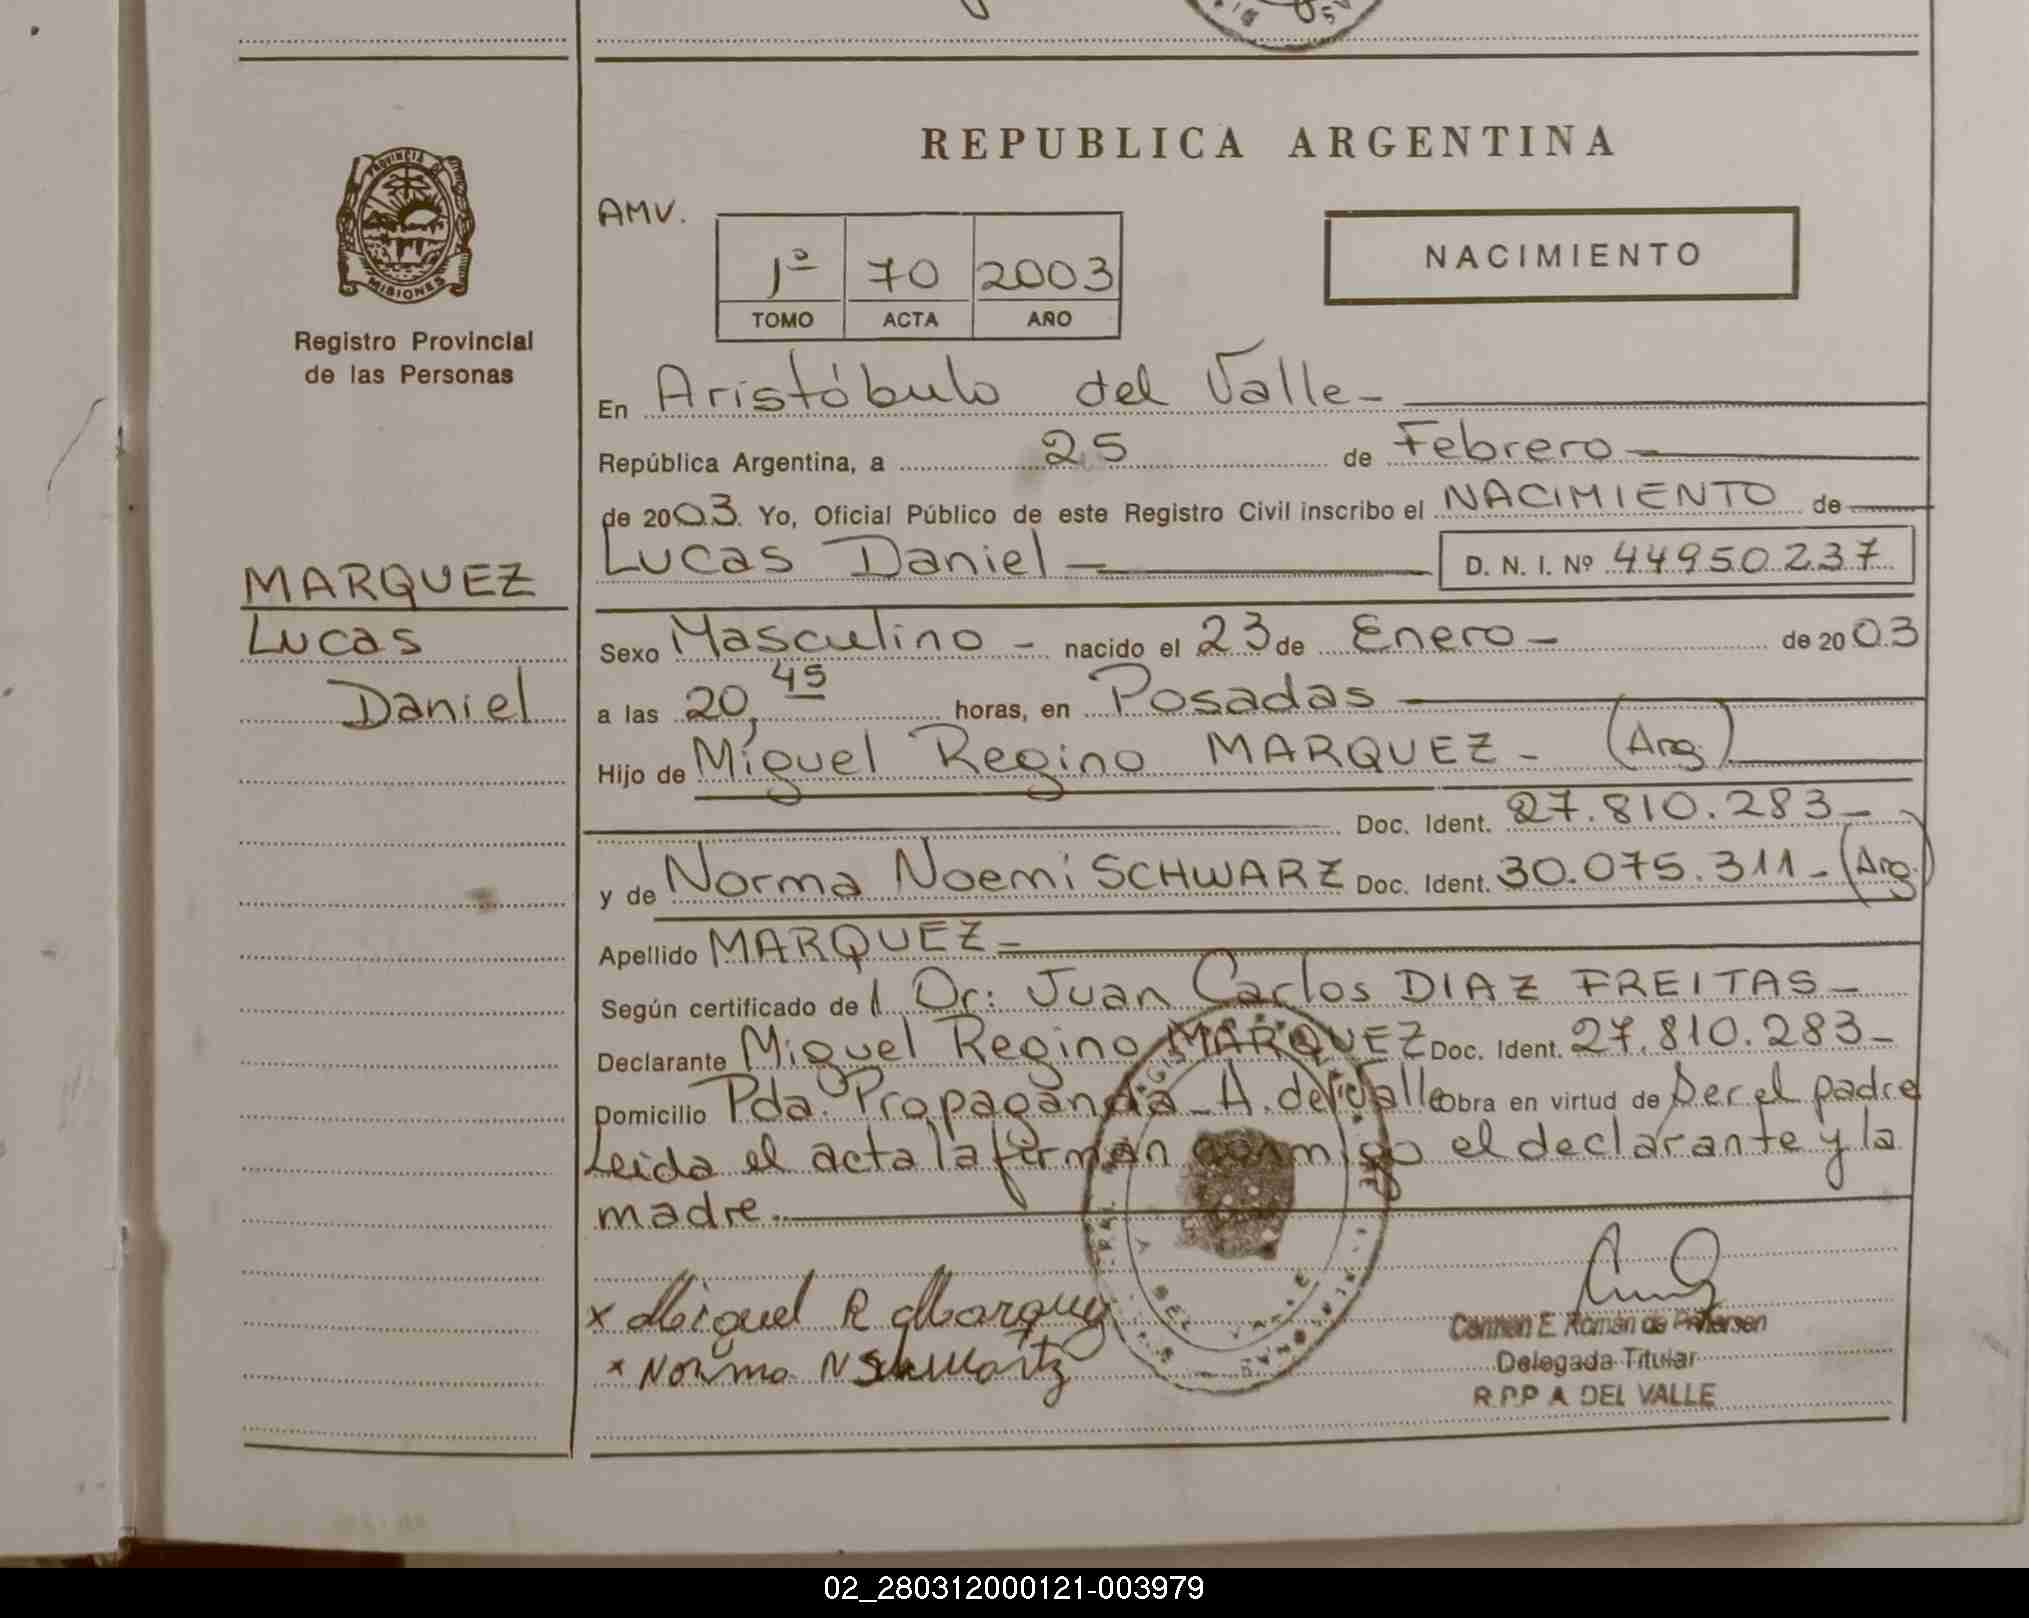 REPUBLICA ARGENTINA
PROVINCIA DE
MISIONES
Registro Provincial
de las Personas
AMV.
1º 70 2003
TOMO ACTA AÑO
NACIMIENTO
En Aristóbulo del Valle-
República Argentina, a 25 de Febrero
de 2003. Yo, Oficial Público de este Registro Civil inscribo el NACIMIENTO de
Lucas Daniel D. N. I. Nº 44950.237
MARQUEZ
Lucas
Daniel
Sexo Masculino - nacido el 23 de Enero - de 2003
a las 20,45 horas, en Posadas
Hijo de Miguel Regino MARQUEZ - (Arg.)
Doc. Ident. 27.810.283-
y de Norma Noemi SCHWARZ Doc. Ident. 30.075.311-(Arg.)
Apellido MARQUEZ-
Según certificado de l Dr: Juan Carlos DIAZ FREITAS-
Declarante Miguel Regino MARQUEZ Doc. Ident. 27.810.283-
Domicilio Pda. Propaganda - A. del Valle obra en virtud de Ser el padre
Leida el acta la firman conmigo el declarante y la
madre.
x Miguel R Marquez
x Norma N Schwartz
Carmen E. Román de Petersen
Delegada Titular
R.P.P A. DEL VALLE
02_280312000121-003979